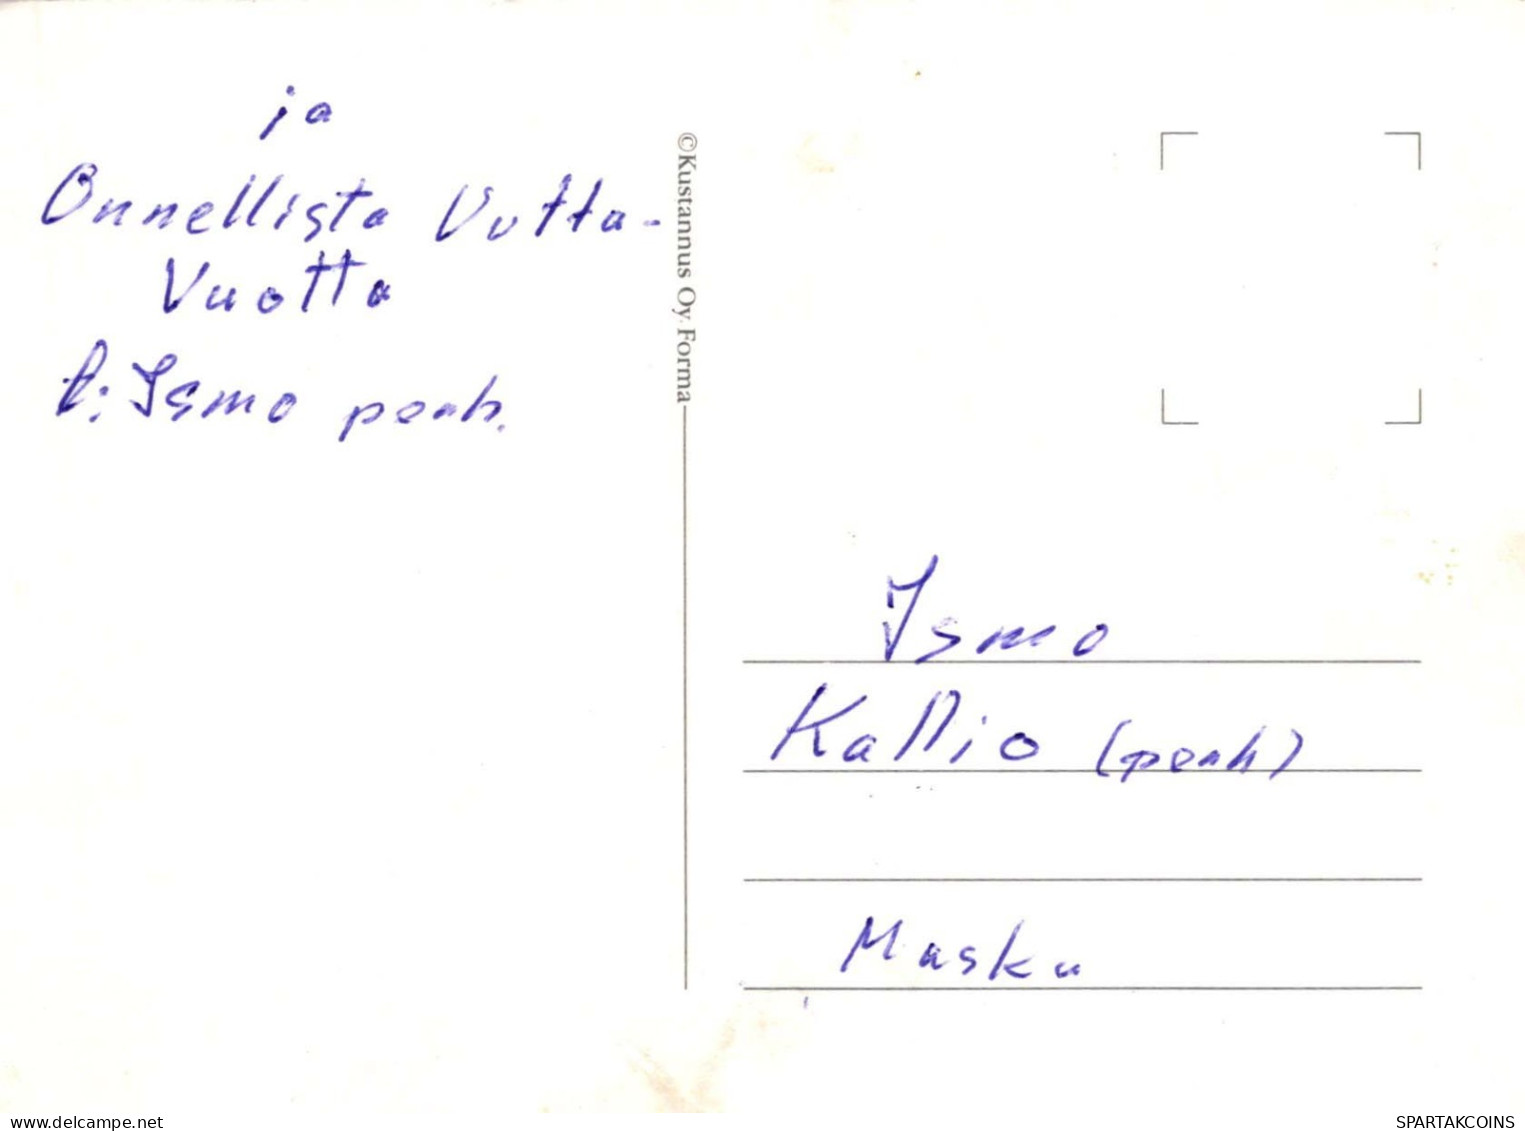 ja
Onnellista Vutta-
Vuotta
t: Ismo perh.
©Kustannus Oy Forma
Ismo
Kallio (perh)
Masku
delcampe.net
SPARTAKCOINS